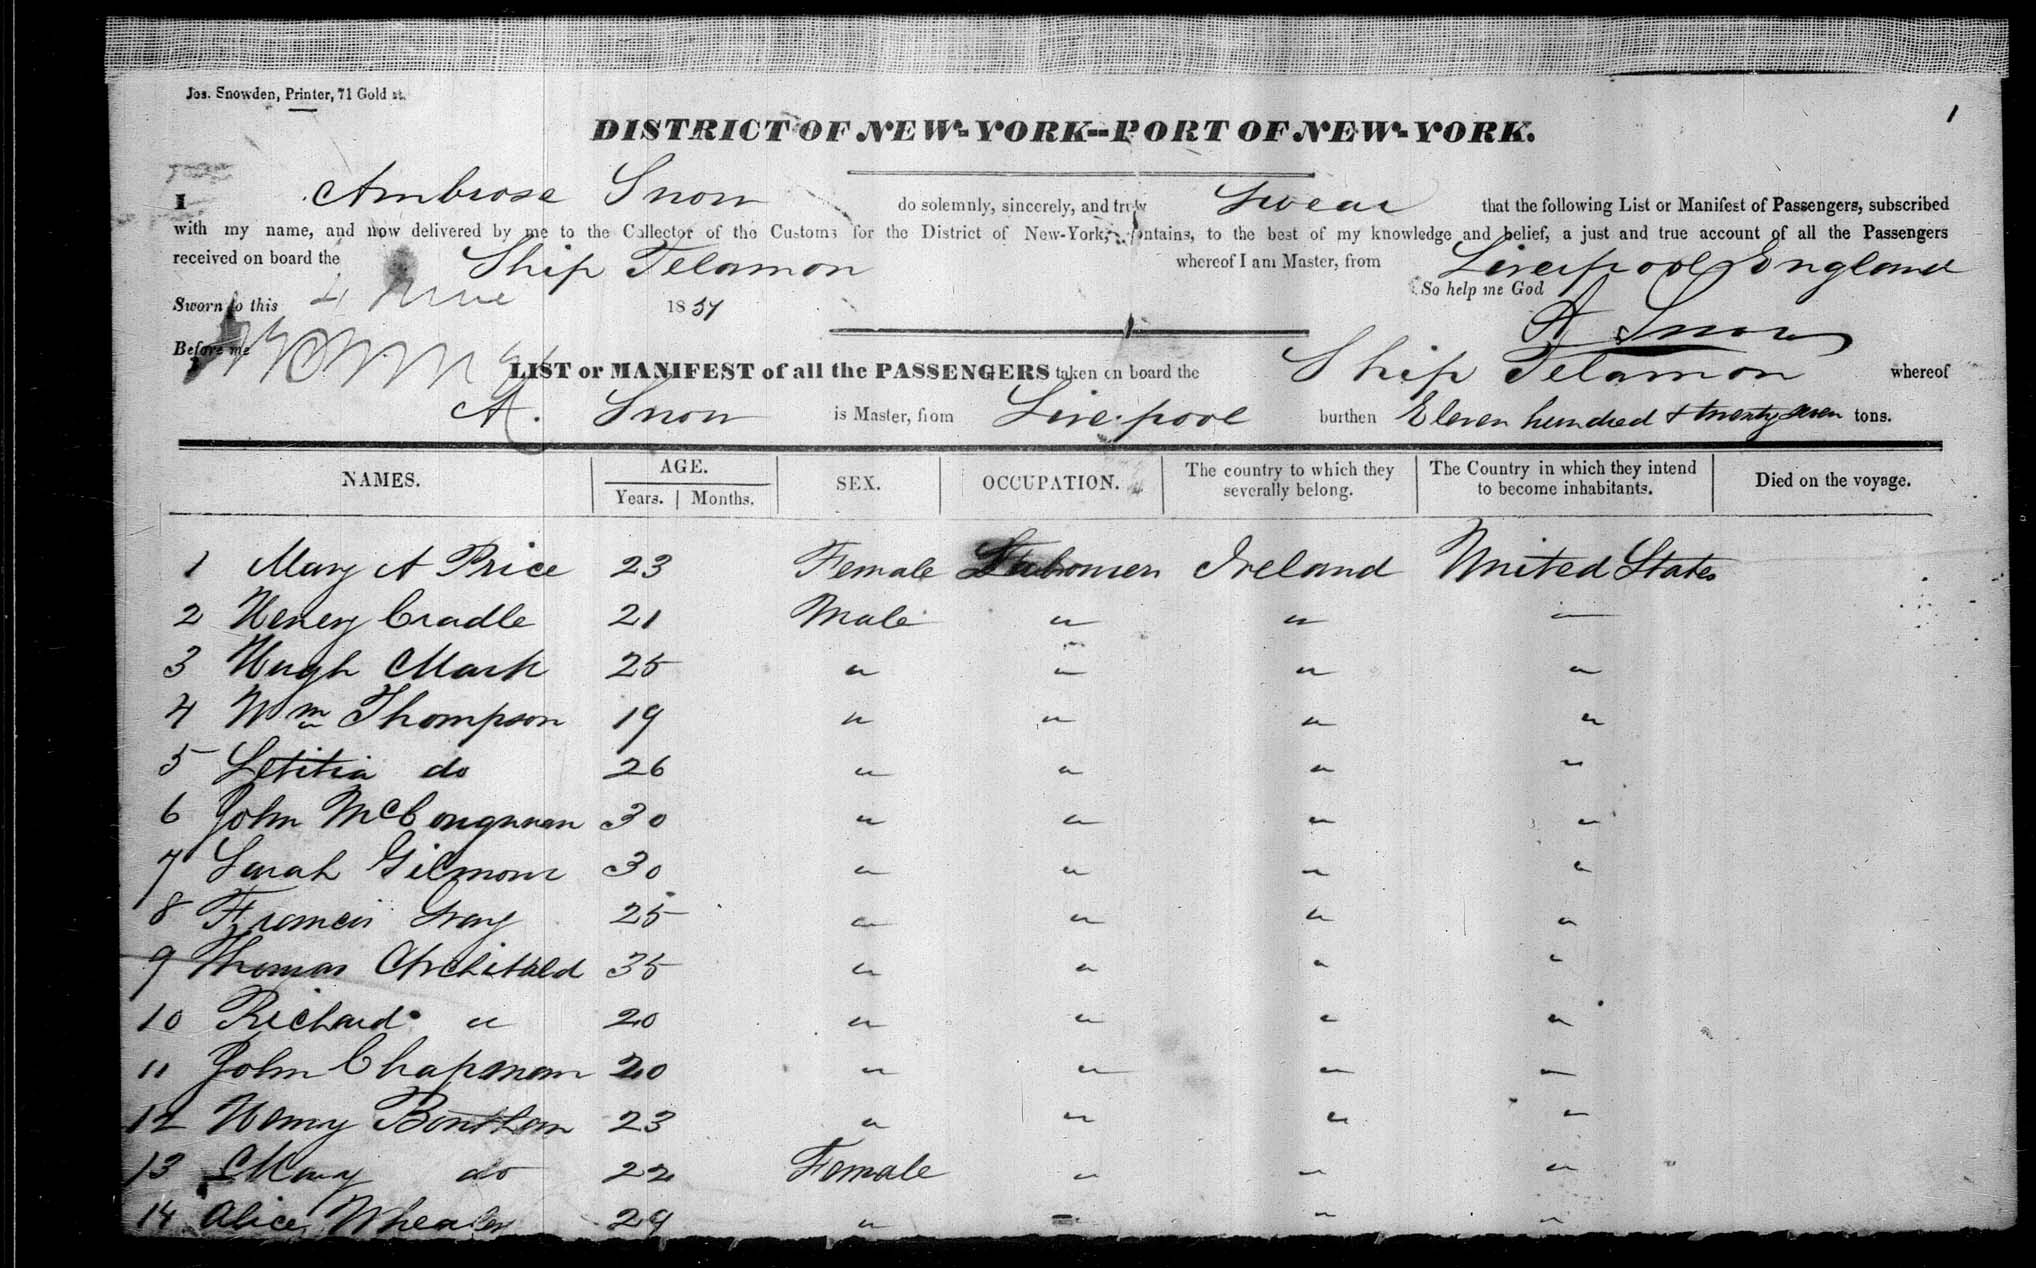 Jos. Snowden, Printer, 71 Gold st.
1
DISTRICT OF NEW-YORK--PORT OF NEW-YORK.
I Ambrose Snow do solemnly, sincerely, and truly Swear that the following List or Manifest of Passengers, subscribed
with my name, and now delivered by me to the Collector of the Customs for the District of New-York, contains, to the best of my knowledge and belief, a just and true account of all the Passengers
received on board the Ship Telamon whereof I am Master, from Liverpool England
So help me God
Sworn to this 4 June 1857
A Snow
Before me
LIST or MANIFEST of all the PASSENGERS taken on board the Ship Telamon whereof
A. Snow is Master, from Liverpool burthen Eleven hundred + twenty seven tons.
NAMES. AGE. Years. Months. SEX. OCCUPATION. The country to which they severally belong. The Country in which they intend to become inhabitants. Died on the voyage.
1 Mary A Price 23 Female Ireland United States
2 Henery Cradle 21 Male " " "
3 Hugh Mark 25 " " " "
4 Wm Thompson 19 " " " "
5 Letitia do 26 " " " "
6 John 30 " " " "
7 Sarah Gilmour 30 " " " "
8 Francis Gray 25 " " " "
9 Thomas Archibald 35 " " " "
10 Richard " 20 " " " "
11 John Chapman 20 " " " "
12 Henry 23 " " " "
13 Mary do 22 Female " " "
14 Alice 29 " " " "